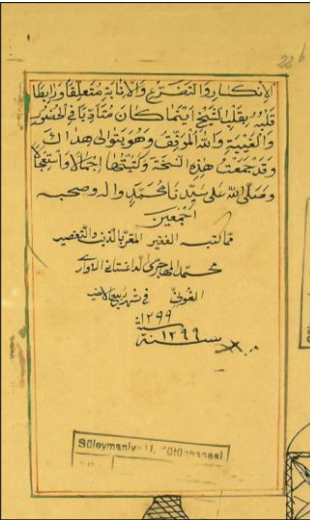 22 b
الانكسار والتضرع والانابة متعلقا ورابطا
قلبه بقلب الشيخ اينما كان متأدبا في الحضور
والغيبة والله الموفق وهو يتولى هداك
وقد جمعت هذه النسخة وكتبتها اجمالا واستعجالا
وصلى الله على سيدنا محمد واله وصحبه
اجمعين
مما كتبه الفقير المقر بالذنب والتقصير
محمد المهاجرى الداغستاني الاوارى
في شهر ربيع
١٢٩٩
سنة ١٢٩٩
Süleymaniye U. Kütüphanesi